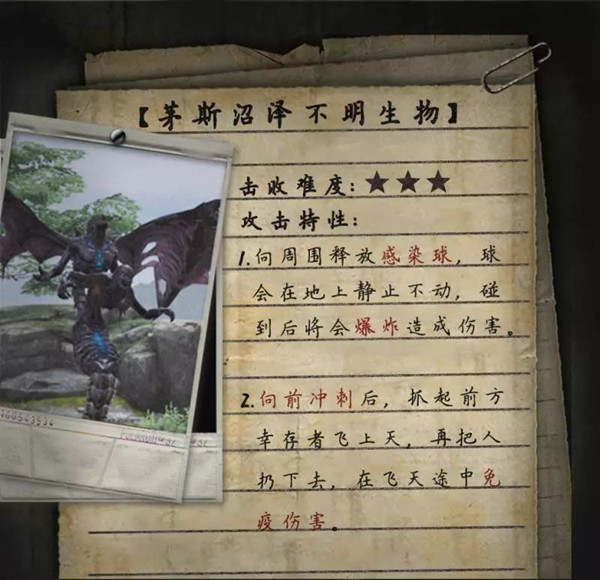 【茅斯沼泽不明生物】
击败难度:★★★
攻击特性:
1.向周围释放感染球,球
会在地上静止不动,碰
到后将会爆炸造成伤害。
2.向前冲刺后,抓起前方
幸存者飞上天,再把人
扔下去,在飞天途中免
疫伤害。